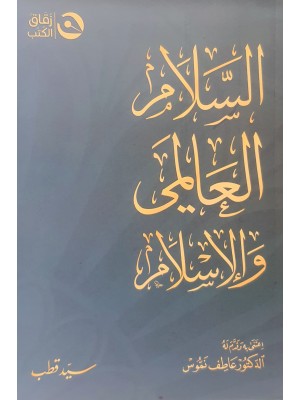 زقاق
الكتب
السَّلَام
العَالَمِي
وَالإِسْلَام
اعتنى به وقدّم له
الدكتور عاطف نفوس
سيّد قطب